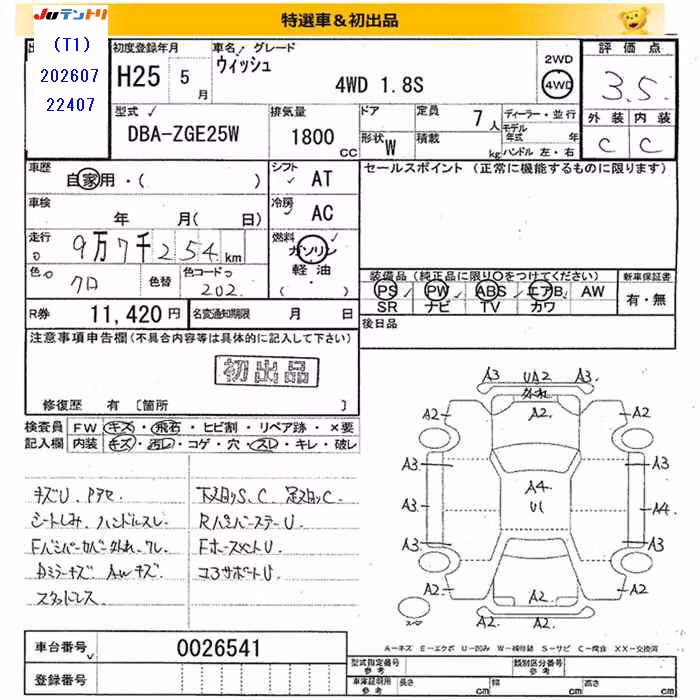 JUテントリ
特選車＆初出品
(T1)
202607
22407
初度登録年月
H25 5月
車名 グレード
ウィッシュ
4WD 1.8S
2WD
4WD
評価点
3.5
外装 内装
C C
型式
DBA-ZGE25W
排気量
1800 CC
ドア
形状 W
定員 7人
積載 kg
ディーラー・並行
モデル年式 年
ハンドル 左・右
車歴
自家用・( )
シフト AT
車検
年 月( 日)
冷房 AC
走行
9万7千254km
燃料
ガソリン
軽油
( ・ )
色
クロ
色替
色コードつ
202
R券 11,420円
名変通知期限 月 日
セールスポイント (正常に機能するものに限ります)
装備品 (純正品に限り○をつけてください)
PS PW ABS エアB AW
SR ナビ TV カワ
新車保証書
有・無
後日品
注意事項申告欄(不具合内容等は具体的に記入して下さい)
初出品
修復歴 有 [箇所 ]
検査員 FW キズ・飛石・ヒビ割・リペア跡・×要
記入欄 内装 キズ・汚レ・コゲ・穴・スレ・キレ・破レ
キズU、Pアセ
シートしみ、ハンドルスレ
Fバンパーカバー外れ、ワレ
Dミラーキズ AWキズ
スタッドレス
下スロリS、C、足スロリC.
RバンパーステーU
FホースメントU
コアサポートU
A3 UA2 A3
外れ
A2 A2 A2
A3 A3
A4
U1
A3 A4
A3 A3
A2 A2
A2
A2
スペア
A－キズ E－エクボ U－凹み W－補修跡 S－サビ C－腐食 XX－交換済
車台番号 0026541
登録番号
型式指定番号 参考
類別区分番号 参考
車庫証明用 参考 長さ cm 幅 cm 高さ cm